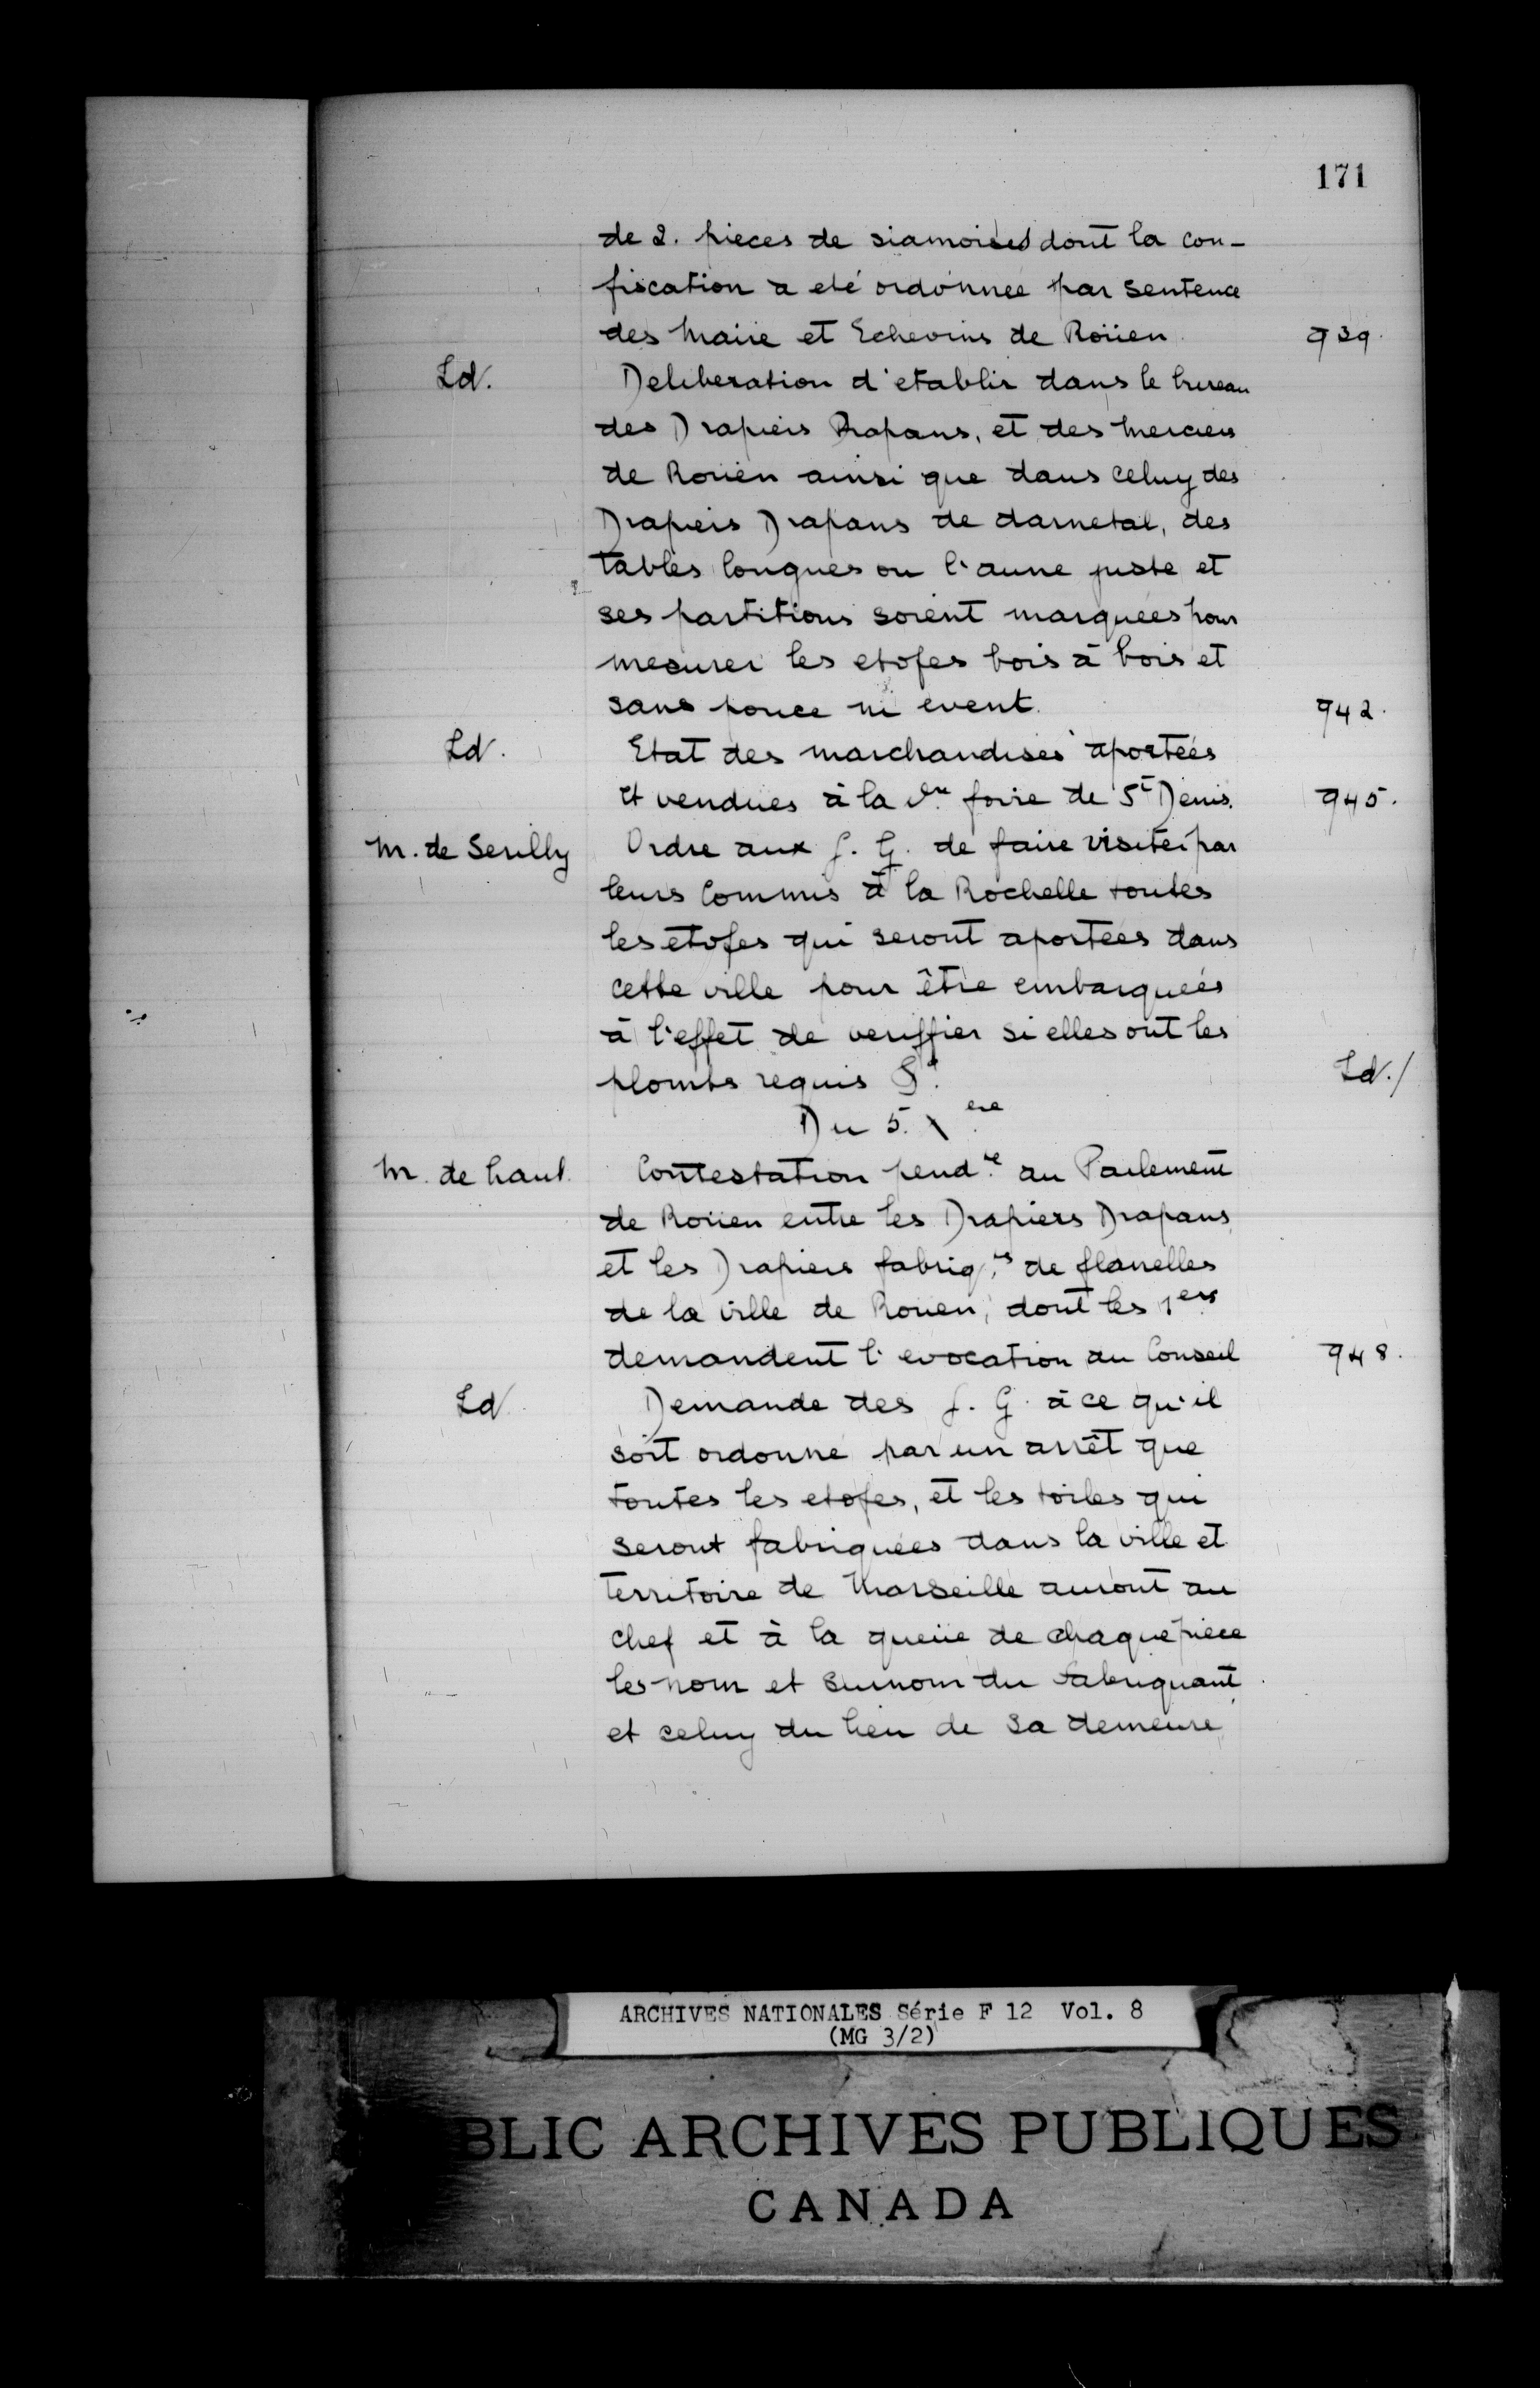 171
de 2. pieces de siamoises dont la con-
fiscation a eté ordonnée par sentence
des Maire et Echevins de Roüen. 939.
Id. Deliberation d'etablir dans le bureau
des Drapiers Drapans, et des Merciers
de Roüen ainsi que dans celuy des
Drapiers Drapans de darnetal, des
tables longues ou l'aune juste et
ses partitions soient marquées pour
mesurer les etofes bois à bois et
sans pouce ni event. 942.
Id. Etat des marchandises aportées
et vendues à la foire de St Denis. 945.
M. de Serilly Ordre aux J. G. de faire visiter par
leurs Commis à la Rochelle toutes
les etofes qui seront aportées dans
cette ville pour être embarquées
à l'effet de veriffier si elles ont les
plombs requis Id./
Du 5. Xere
M. de haul. Contestation pendte au Parlement
de Roüen entre les Drapiers Drapans,
et les Drapiers fabriqts de flanelles
de la ville de Rouen, dont les 1ers
demandent l'evocation au Conseil 948.
Id. Demande des J. G. à ce qu'il
soit ordonné par un arrêt que
toutes les etofes, et les toiles qui
seront fabriquées dans la ville et
territoire de Marseille auront au
chef et à la queüe de chaque piece
les nom et surnom du Fabriquant
et celuy du lieu de sa demeure
ARCHIVES NATIONALES Série F 12 Vol. 8
(MG 3/2)
BLIC ARCHIVES PUBLIQUES
CANADA